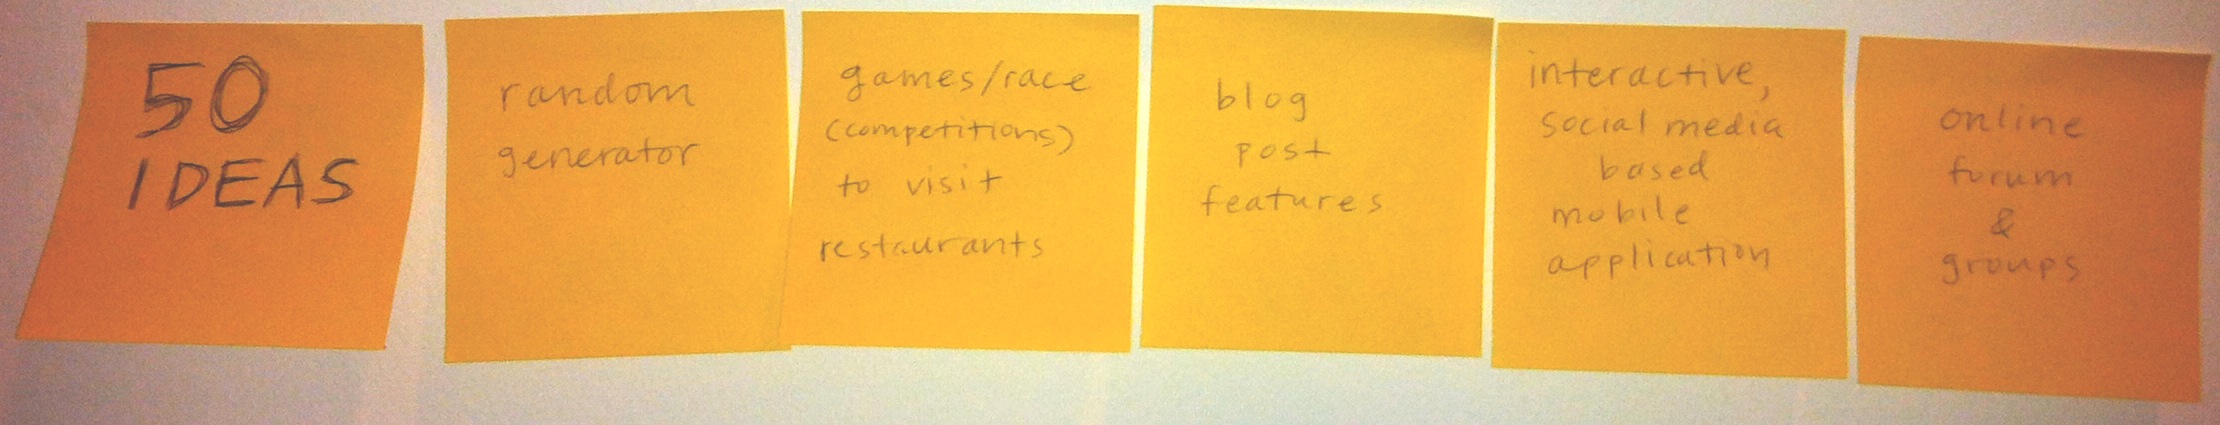 50
IDEAS
random
generator
games/race
(competitions)
to visit
restaurants
blog
post
features
interactive,
social media
based
mobile
application
online
forum
&
groups